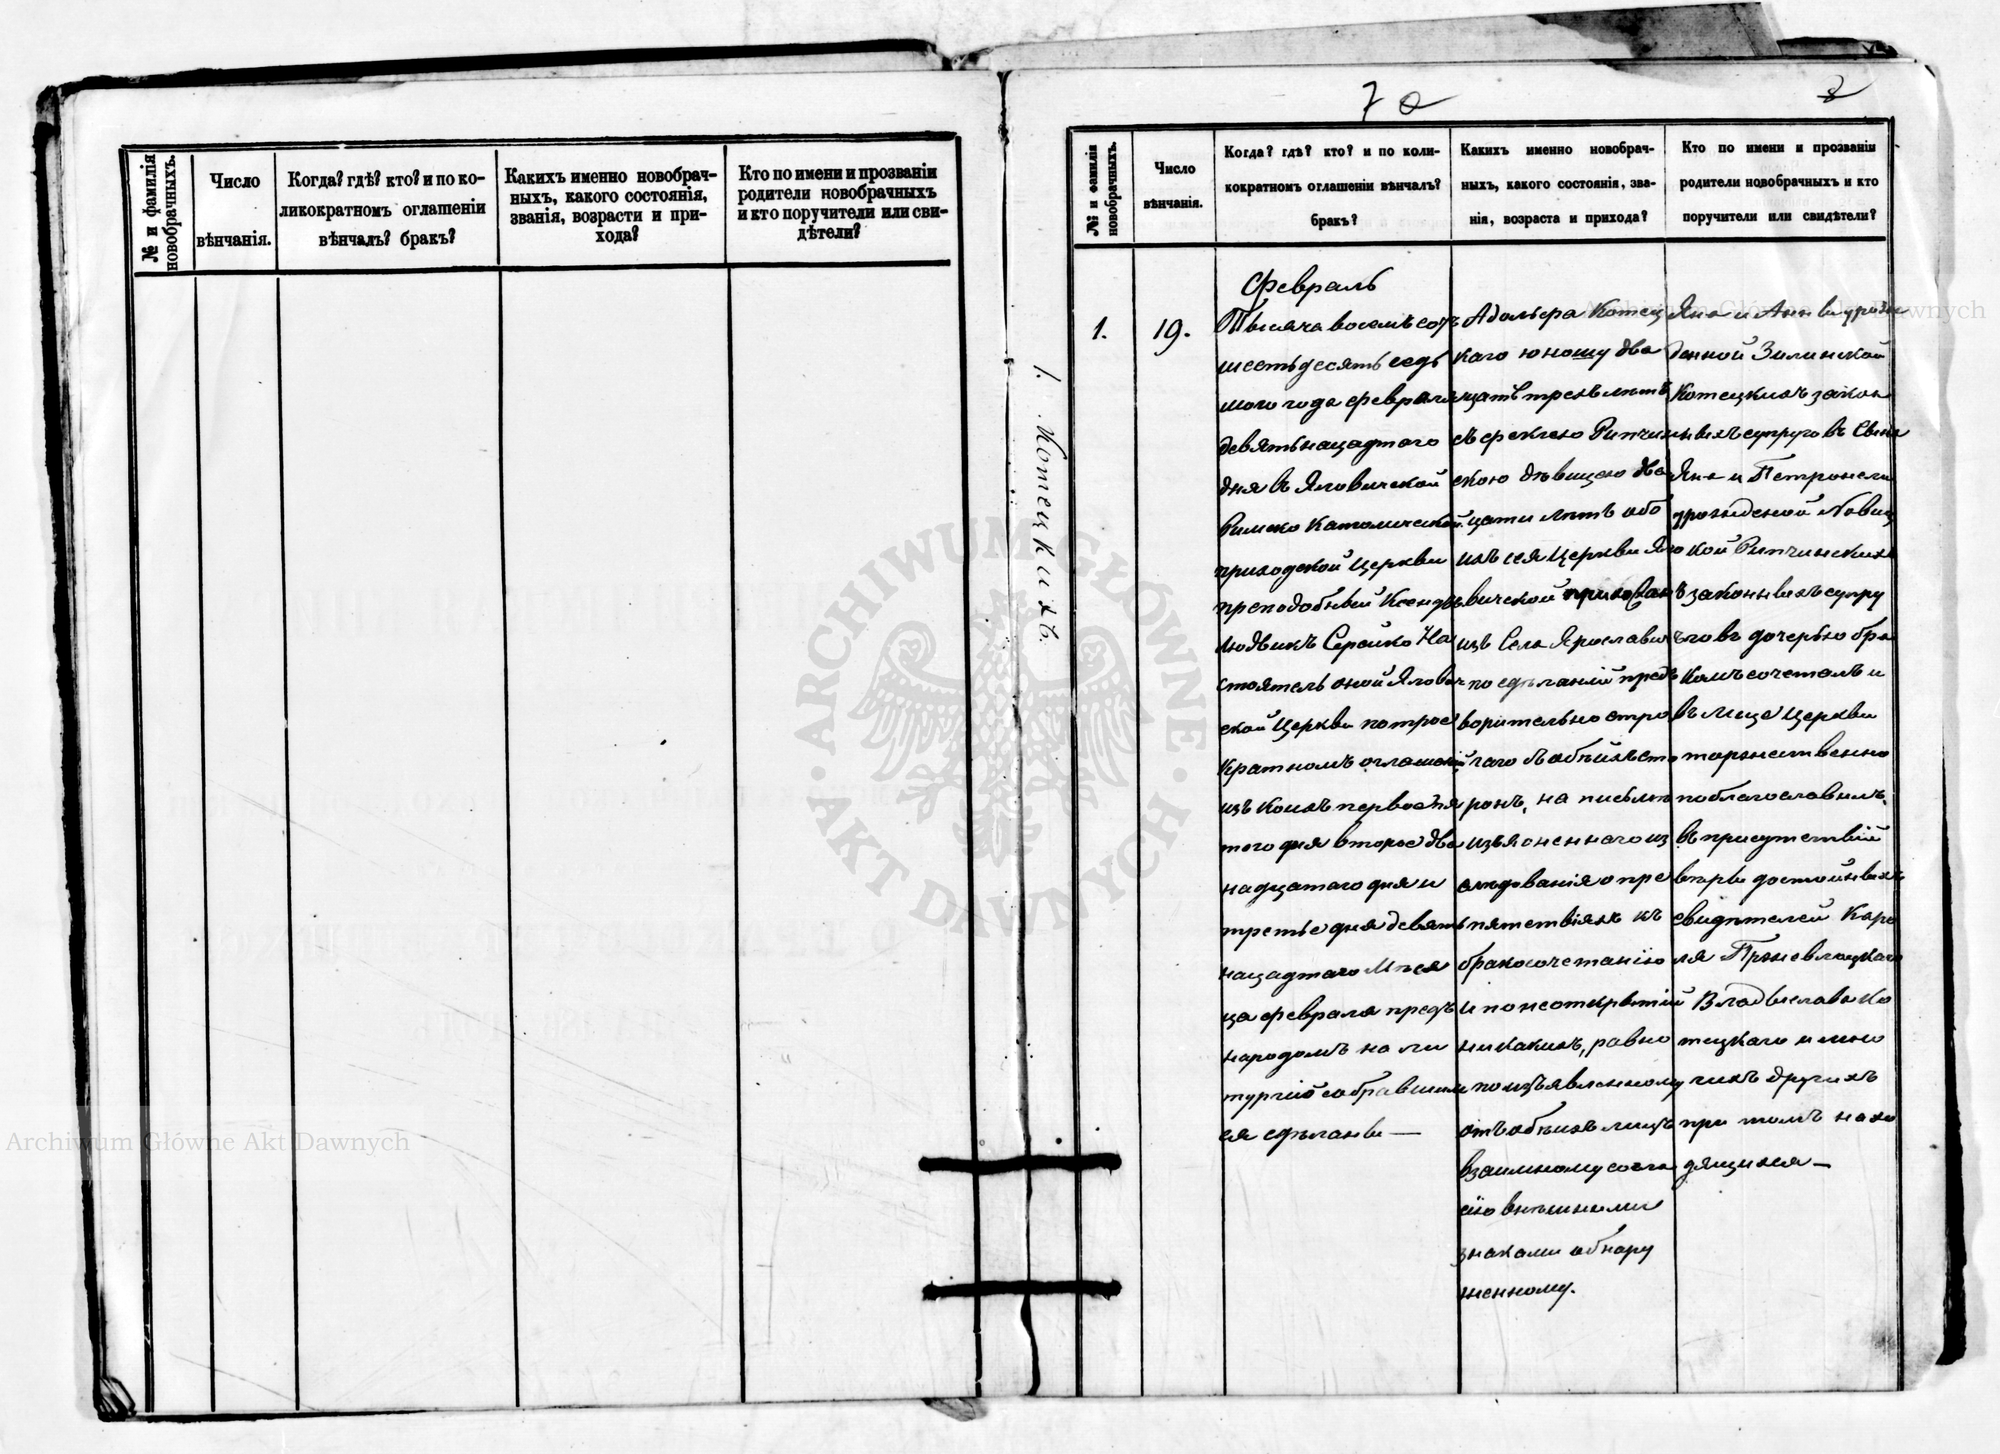 № и фамилія
новобрачныхъ.
Число
вѣнчанія.
Когда? гдѣ? кто? и по ко-
ликократномъ оглашеніи
вѣнчалъ? бракъ?
Каких именно новобрач-
ныхъ, какого состоянія,
званія, возрасти и при-
хода?
Кто по имени и прозваніи
родители новобрачныхъ
и кто поручители или сви-
дѣтели?
7
8
№ и фамилія
новобрачныхъ.
Число
вѣнчанія.
Когда? гдѣ? кто? и по коли-
кократномъ оглашеніи вѣнчалъ?
бракъ?
Какихъ именно новобрач-
ныхъ, какого состоянія, зва-
нія, возраста и прихода?
Кто по имени и прозваніи
родители новобрачныхъ и кто
поручители или свидѣтели?
1. Котецкихъ.
1.
19.
Февраль
Тысяча восемьсотъ
шестьдесятъ седь
мого года февраля
девятьнацадтого
дня въ Яловической
Римско Католической
приходской Церкви
преподобный Ксендзъ
Людвикъ Серейко На
стоятель оной Ялович
ской Церкви по трое
кратномъ оглашеній
изъ коихъ первое пя
того дня второе два
надцатого дня и
третье дня девять
нацадтого Мѣся
ца февраля предъ
народомъ на ли
тургію собравшим
ся сдѣланы —
Адольфа Котец
каго юношу два
цать трехъ лѣтъ
съ Феклею Рипчин
скою дѣвицею два
цати лѣтъ обо
ихъ сея Церкви Яло
вической прихожанъ
изъ Села Ярославич
по сдѣланіи предъ
ворительно стро
гаго съ обѣихъ сто
ронъ, на письмѣ
изъясненнаго из
слѣдованія о пре
пятствіяхъ къ
бракосочетанію
и по неоткрытій
никакихъ, равно
по изъявленному
отъ обѣихъ лицъ
взаимному согла
сію внѣшними
знаками обнару
женному.
Яна и Анны урож
денной Зилинской
Котецкихъ закон
ныхъ супруговъ Сына
Яна и Петронели
урожденой Новиц
кой Рипчинскихъ
законныхъ супру
говъ дочерью бра
комъ сочеталъ и
въ лице Церкви
торжественно
поблагословилъ,
въ присутствій
вѣры достойныхъ
свидѣтелей Каро
ля Пржевлоцкаго
Владыслава Ко
тецкаго и мно
гихъ другихъ
при томъ нахо
дящихся —
Archiwum Główne Akt Dawnych
Archiwum Główne Akt Dawnych
ARCHIWUM GŁÓWNE · AKT DAWNYCH ·